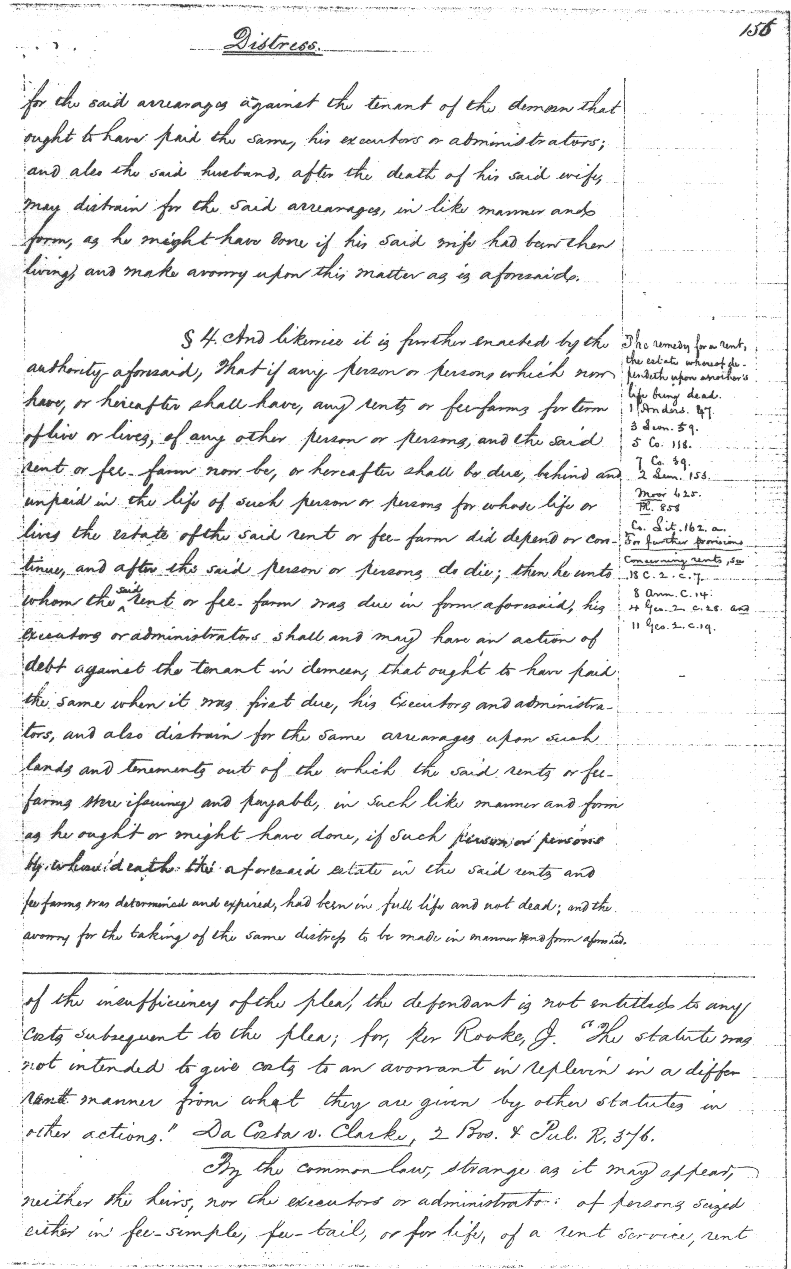 156
Distress.
for the said arrearages against the tenant of the demesn that
ought to have paid the same, his executors or administrators;
and also the said husband, after the death of his said wife,
may distrain for the said arrearages, in like manner and
form, as he might have done if his said wife had been then
living, and make avowry upon this matter as is aforesaid.
§ 4. And likewise it is further enacted by the
authority aforesaid, That if any person or persons which now
have, or hereafter shall have, any rents or fee-farms for term
of live or lives, of any other person or persons, and the said
rent or fee-farm now be, or hereafter shall be due, behind and
unpaid in the life of such person or persons for whose life or
lives the estate of the said rent or fee-farm did depend or con-
tinue, and after the said person or persons do die; then he unto
whom the said rent or fee-farm was due in form aforesaid, his
executors or administrators shall and may have an action of
debt against the tenant in demesn, that ought to have paid
the same when it was first due, his Executors and administra-
tors, and also distrain for the same arrearages upon such
lands and tenements out of the which the said rents or fee-
farms were issuing and payable, in such like manner and form
as he ought or might have done, if such person or persons
by whose death the aforesaid estate in the said rents and
fee farms was determined and expired, had been in full life and not dead; and the
avowry for the taking of the same distress to be made in manner and form aforesaid.
The remedy for a rent,
the estate whereof de-
pendeth upon another's
life being dead.
1 Anders. 47.
3 Leon. 59.
5 Co. 118.
7 Co. 39.
2 Leon. 153.
Moor 625.
Pl. 858
Co. Lit. 162. a.
For further provisions
concerning rents, see
18 C. 2. c. 7.
8 Ann. C. 14.
4 Geo. 2. c. 28. and
11 Geo. 2. c. 19.
of the insufficiency of the plea, the defendant is not entitled to any
costs subsequent to the plea; for, per Rooke, J. "The statute was
not intended to give costs to an avowant in replevin in a diffe-
rent manner from what they are given by other statutes in
other actions." Da Costa v. Clarke, 2 Bos. & Pul. R. 376.
By the common law, strange as it may appear,
neither the heirs, nor the executors or administrators of persons seized
either in fee-simple, fee-tail, or for life, of a rent service, rent